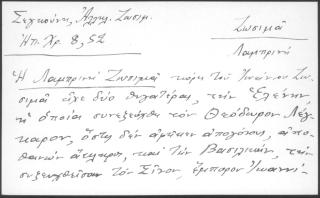 Σεγκούνη, Αλλης. Ζωσιμ.
Ηπ. Χρ. 8, 52
Ζωσιμᾶ
Λαμπρινή
Ἡ Λαμπρινή Ζωσιμᾶ κόρη τοῦ Ἰωάννου Ζω-
σιμᾶ εἶχε δύο θυγατέρας, τήν Ἑλένην
ἡ ὁποία συνεζεύχθη τόν Θεόδωρον
ὅστις δέν ἀφῆκεν ἀπογόνους, ἀπο-
θανών ἄκληρος, καί τήν Βασιλικήν, τήν
συζευχθεῖσαν τόν ἔμπορον Ἰωαννί-